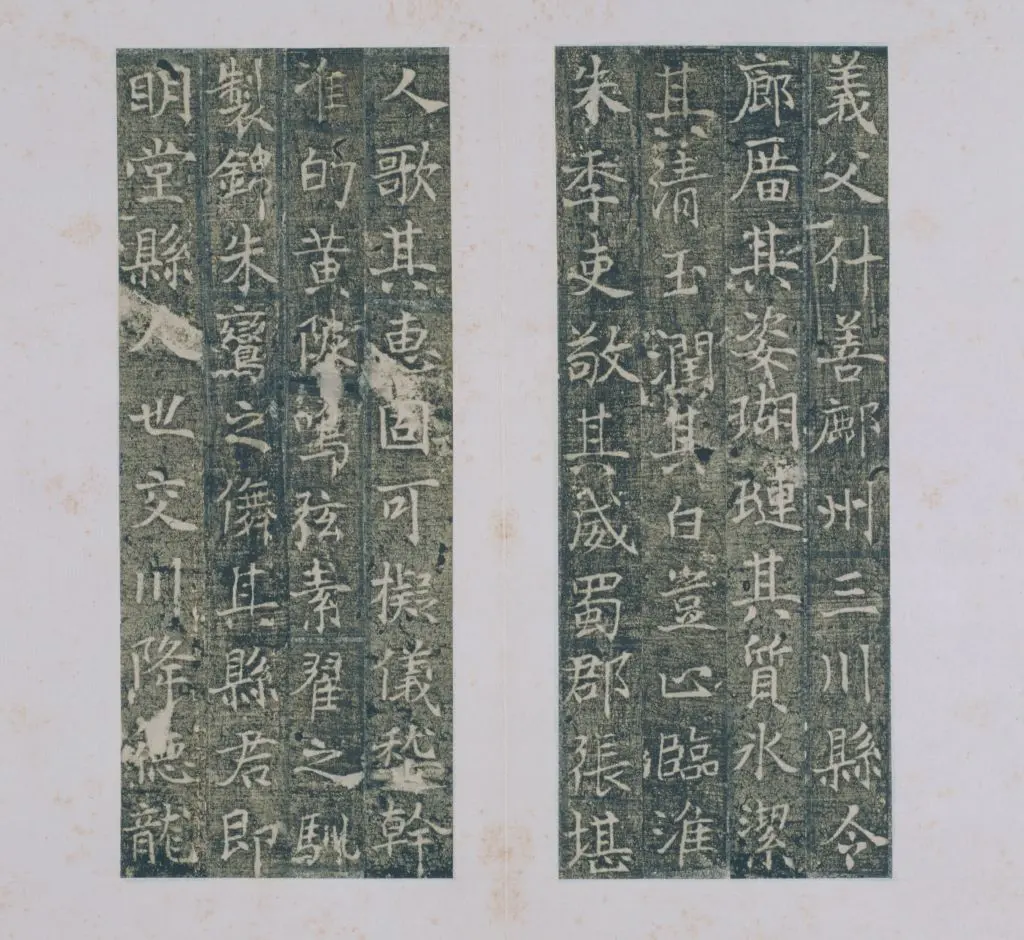 義父什善鄜州三川縣令
廊厝其姿瑚璉其質冰潔
其清玉潤其白豈止臨淮
朱季吏敬其威蜀郡張堪
人歌其惠固可擬儀嵇幹
准的黃陂鳴弦素翟之馴
製錦朱鸞之儛其縣君即
明堂縣人也交川降德龍